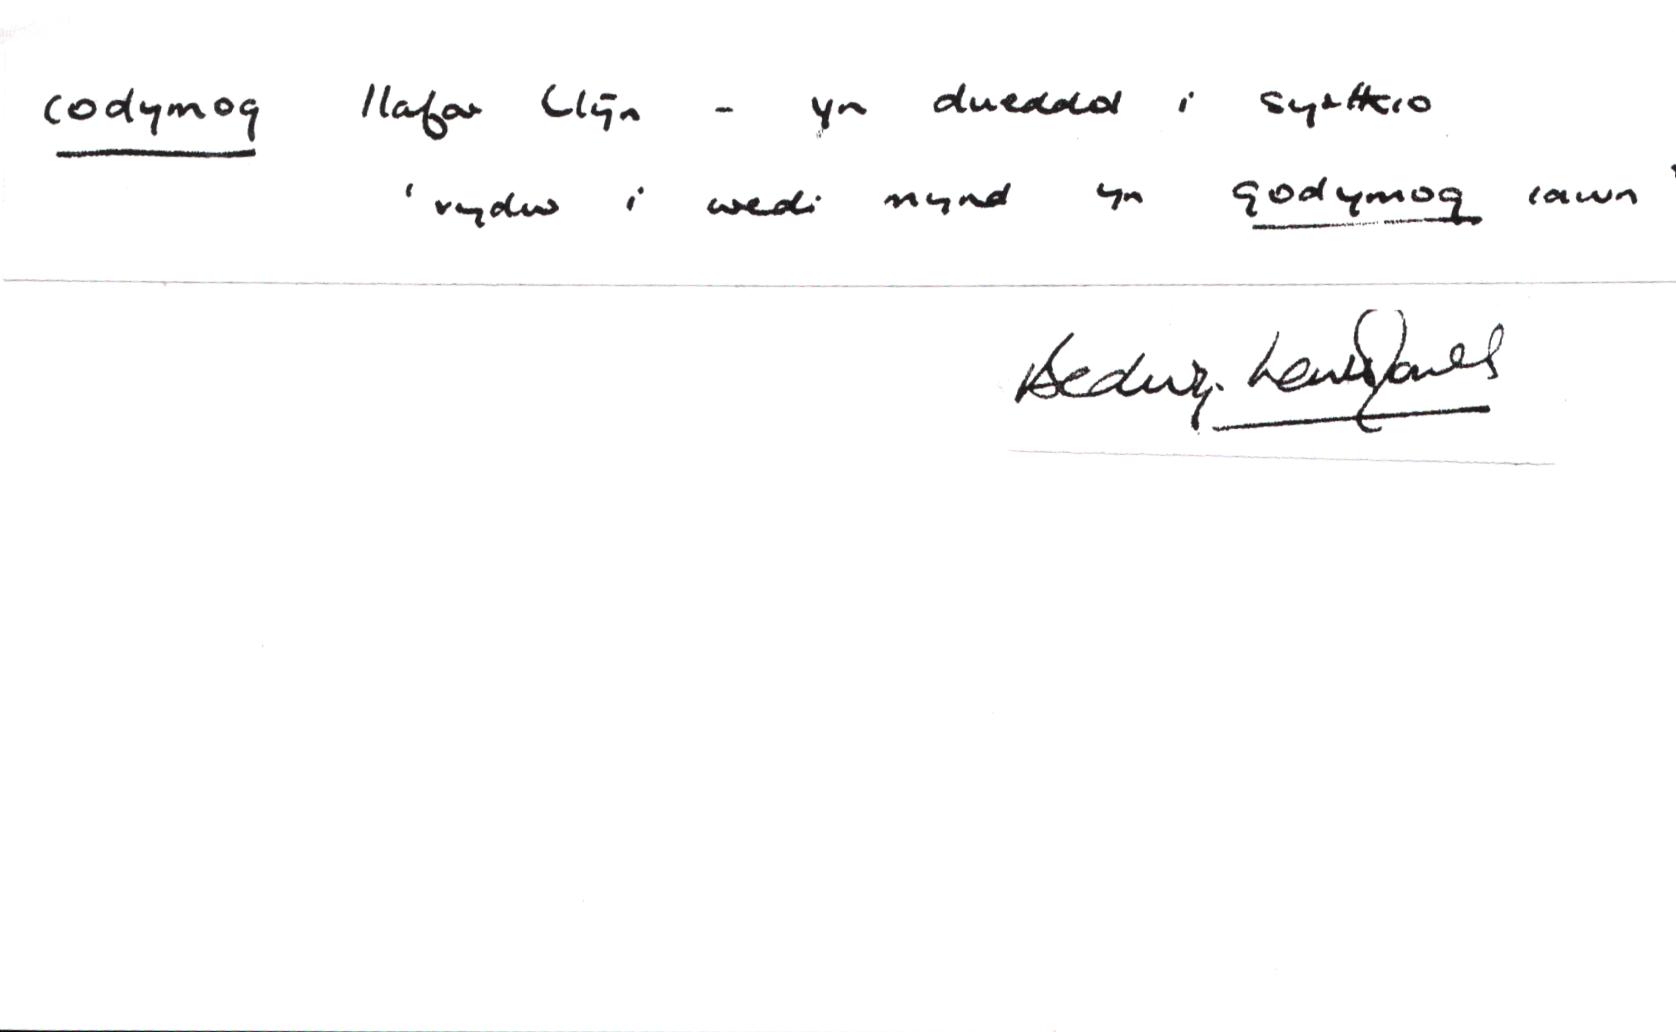 codymog llafar Llŷn - yn dueddol i syrthio
'rydw i wedi mynd yn godymog iawn'
Dedwydd Lewis Jones